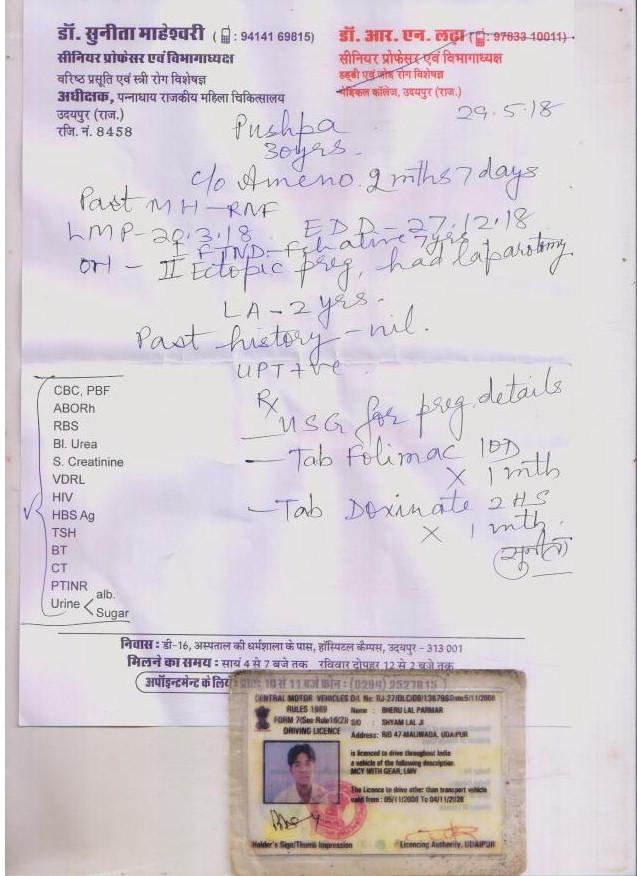 डॉ. सुनीता माहेश्वरी (: 94141 69815)
सीनियर प्रोफेसर एवं विभागाध्यक्ष
वरिष्ठ प्रसूति एवं स्त्री रोग विशेषज्ञ
अधीक्षक, पन्नाधाय राजकीय महिला चिकित्सालय
उदयपुर (राज.)
रजि. नं. 8458
डॉ. आर. एन. लढ़ा (: 97833 10011)
सीनियर प्रोफेसर एवं विभागाध्यक्ष
हड्डी एवं जोड़ रोग विशेषज्ञ
मेडिकल कॉलेज, उदयपुर (राज.)
29.5.18
Pushpa
30yrs.
c/o Ameno. 2 mths 7 days
Past MH - RNF
LMP - 20.3.18 EDD - 27.12.18
OH - I FTND - Fch alive 7yrs
II Ectopic preg, had laparotomy
LA - 2 yrs.
Past history - nil.
UPT +ve
Rx
USG for preg. details
- Tab Folimac 1OD
X 1 mth
- Tab Doxinate 2 HS
X 1 mth.
सुनीता
CBC, PBF
ABORh
RBS
Bl. Urea
S. Creatinine
VDRL
HIV
HBS Ag
TSH
BT
CT
PTINR
Urine < alb.
Sugar
निवास : डी-16, अस्पताल की धर्मशाला के पास, हॉस्पिटल कैम्पस, उदयपुर - 313 001
मिलने का समय : सायं 4 से 7 बजे तक रविवार दोपहर 12 से 2 बजे तक
अपॉइन्टमेन्ट के लिए प्रातः 10 से 11 बजे फोन : (0294) 2527815
CENTRAL MOTOR VEHICLES
RULES 1989
FORM 7(See Rule16(2))
DRIVING LICENCE
D/L No: RJ-27/DLC/08/136796 Date:5/11/2008
Name : BHERU LAL PARMAR
S/O : SHYAM LAL JI
Address: R/O 47-MALIWADA, UDAIPUR
is licenced to drive throughout India
a vehicle of the following description.
MCY WITH GEAR, LMV
The Licence to drive other than transport vehicle
valid from : 05/11/2008 To 04/11/2028
Holder's Sign/Thumb Impression
Licencing Authority, UDAIPUR